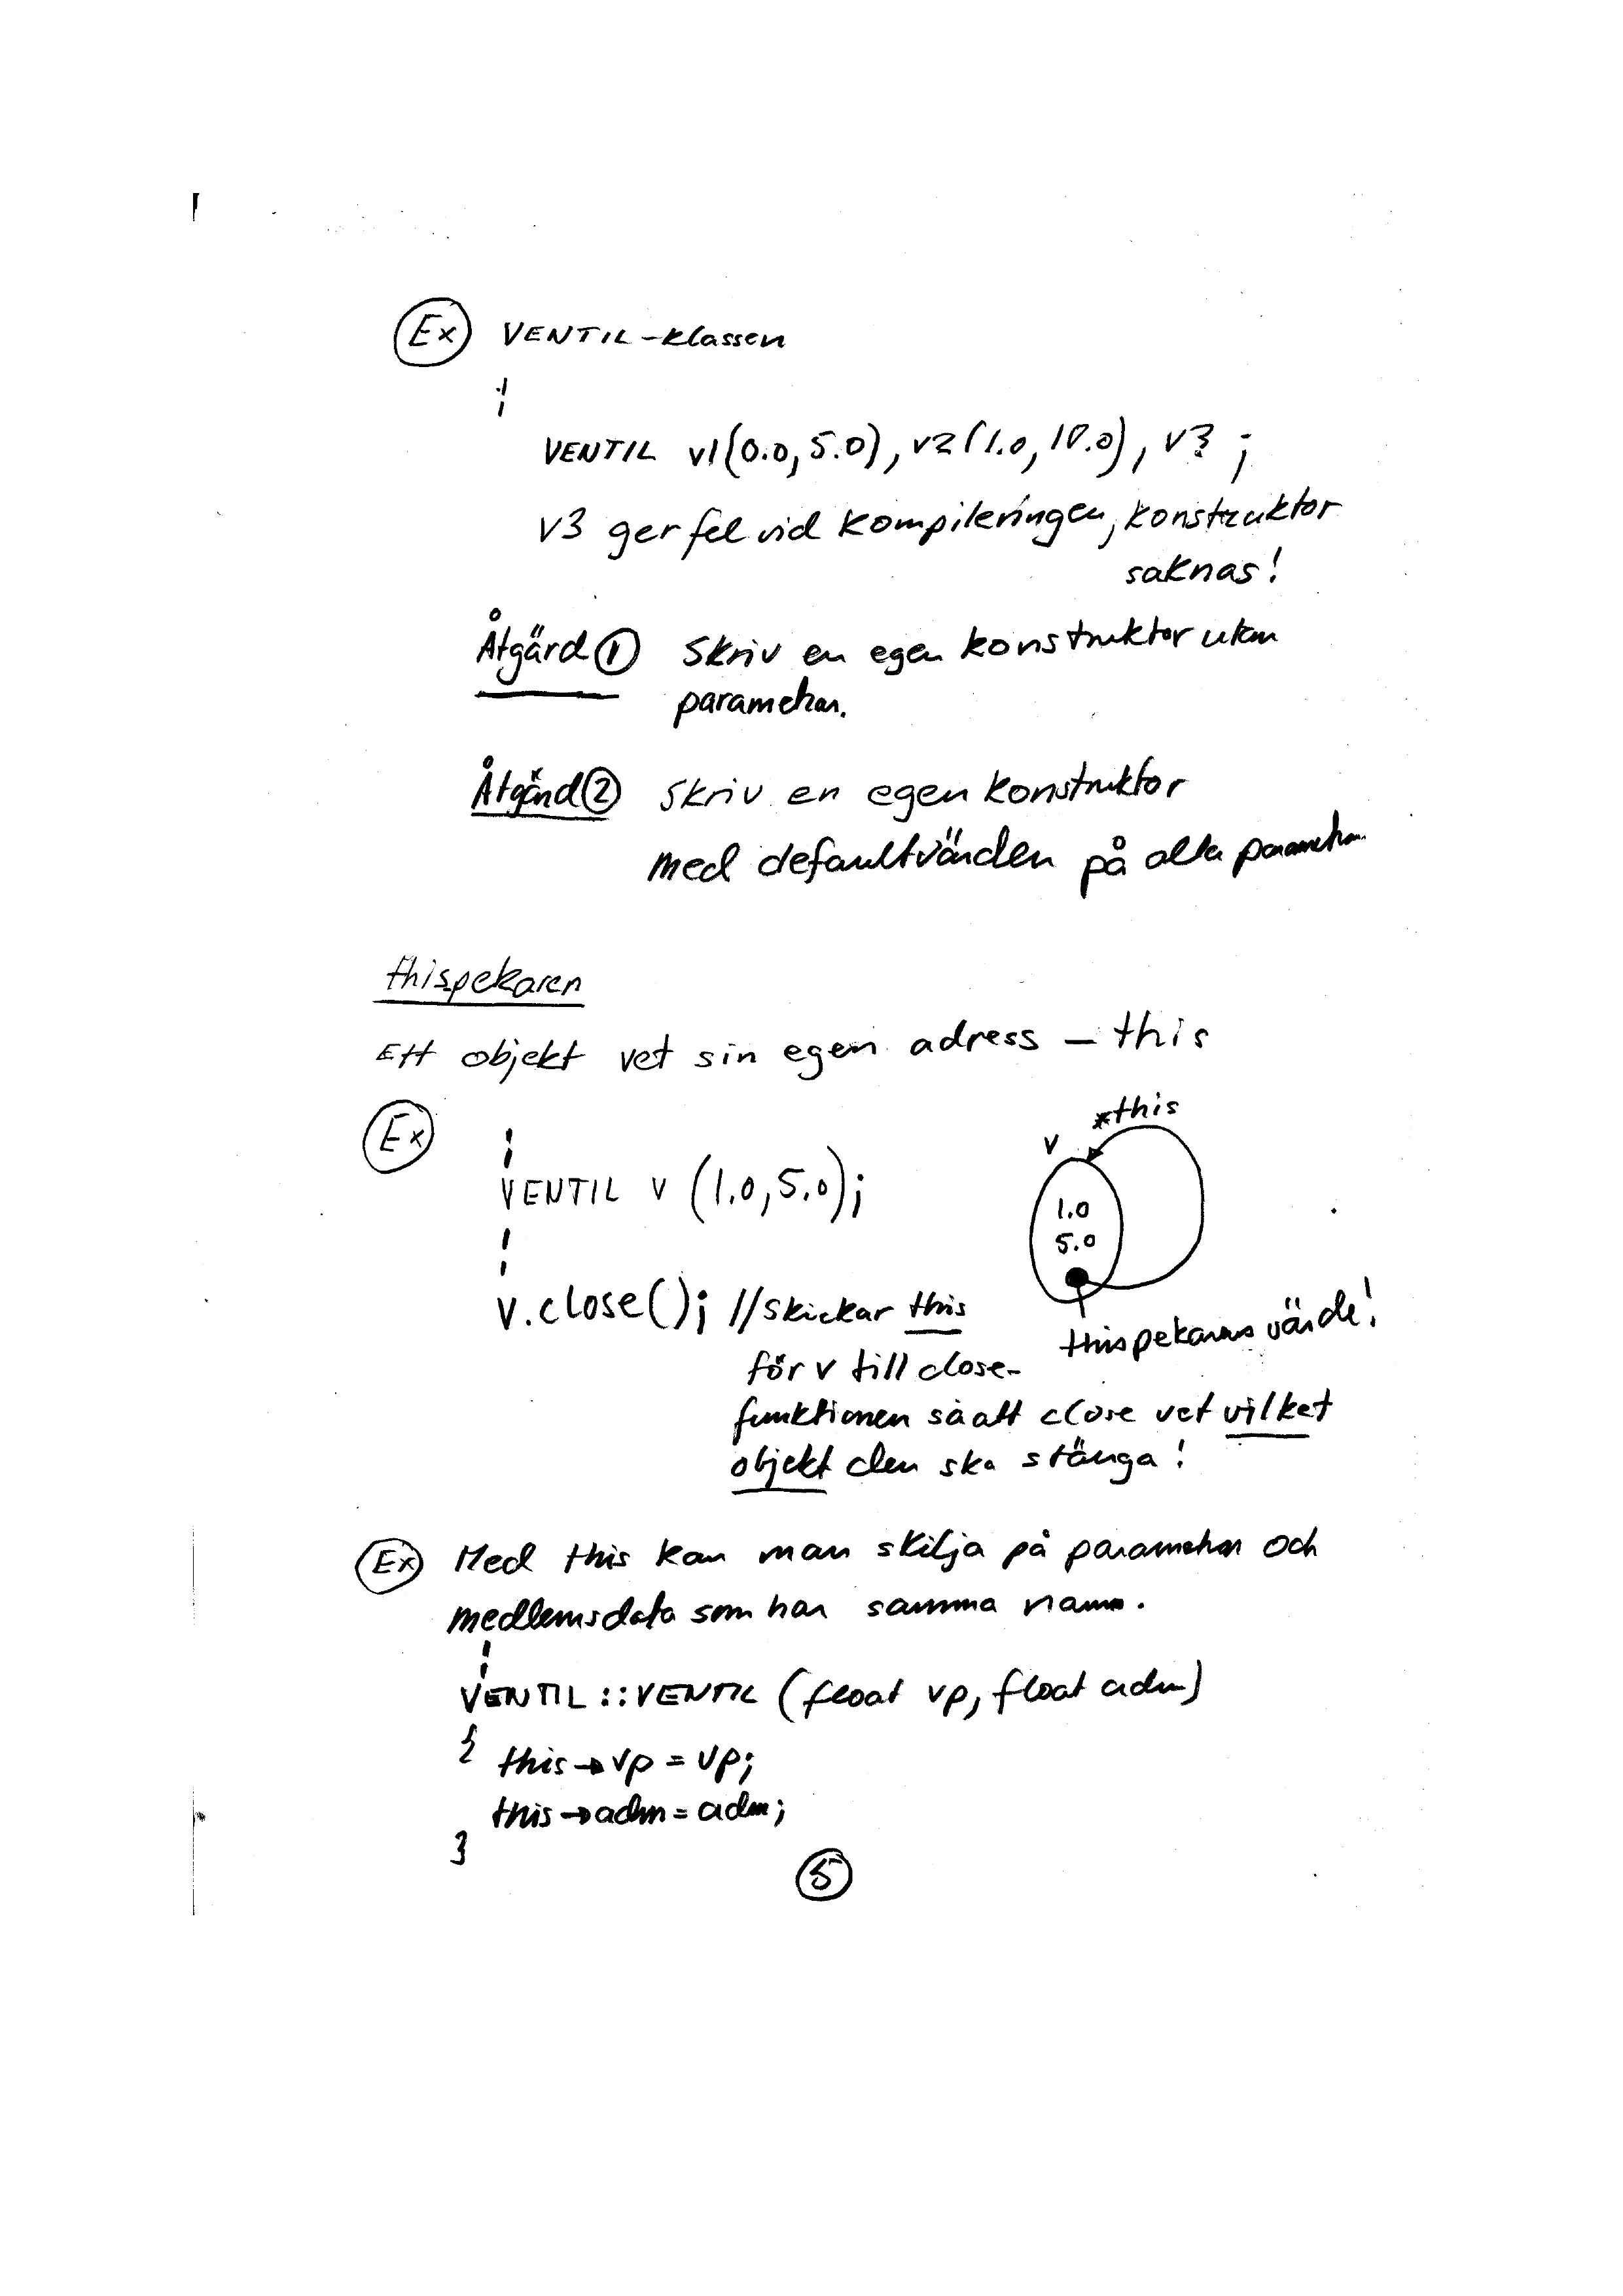 Ex VENTIL-klassen
VENTIL v1(0.0, 5.0), v2(1.0, 10.0), v3 ;
v3 ger fel vid kompileringen, konstruktor
saknas!
Åtgärd 1 Skriv en egen konstruktor utan
parametrar.
Åtgärd 2 Skriv en egen konstruktor
med defaultvärden på alla parametrar
thispekaren
Ett objekt vet sin egen adress – this
Ex
*this
v
VENTIL v (1.0, 5.0);
1.0
5.0
v.close(); //Skickar this
thispekarens värde!
för v till close-
funktionen så att close vet vilket
objekt den ska stänga!
Ex Med this kan man skilja på parametrar och
medlemsdata som har samma namn.
VENTIL::VENTIL (float vp, float adm)
{ this→vp = vp;
this→adm = adm;
}
5